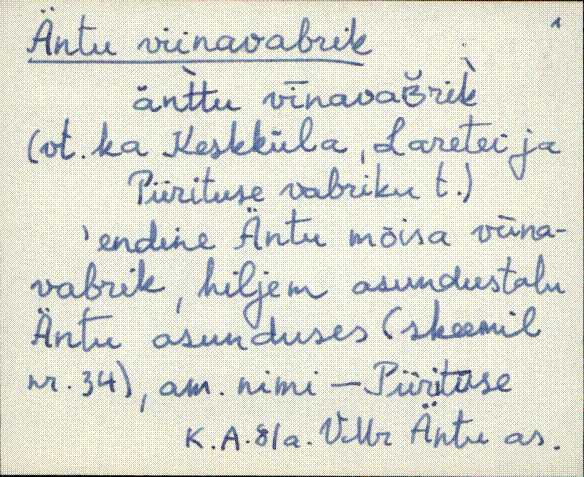 1
Äntu viinavabrik
äǹttu vīnavaʙ̆rik̀
(vt. ka Keskküla, Laretei ja
Piirituse vabriku t.)
'endine Äntu mõisa viina-
vabrik, hiljem asundustalu
Äntu asunduses (skeemil
nr. 34), am. nimi – Piirituse
K.A. 81a. V.Mr Äntu as.